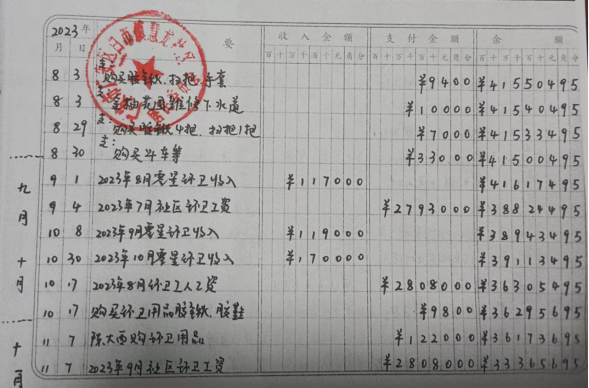 2023年
月 日 要 收入金额 支付金额 余 额
百十万千百十元角分 百十万千百十元角分 百十万千百十元角分
8 3 支:购买胶铁、扫把、手套 ¥9400 ¥41550495
8 3 维修下水道 ¥10000 ¥41540495
8 29 支:购买胶铁4把、扫把1把 ¥7000 ¥41533495
8 30 支:购买斗车等 ¥33000 ¥41500495
九月
9 1 2023年8月零星环卫收入 ¥117000 ¥41617495
9 4 2023年7月社区环卫工资 ¥2793000 ¥38824495
10 8 2023年9月零星环卫收入 ¥119000 ¥38943495
十月
10 30 2023年10月零星环卫收入 ¥170000 ¥39113495
10 17 2023年8月环卫工人工资 ¥2808000 ¥36305495
10 17 购买环卫用品胶铁、胶鞋 ¥9800 ¥36295695
十一月
11 7 陈大西购环卫用品 ¥122000 ¥36173695
11 7 2023年9月社区环卫工资 ¥2808000 ¥33365695